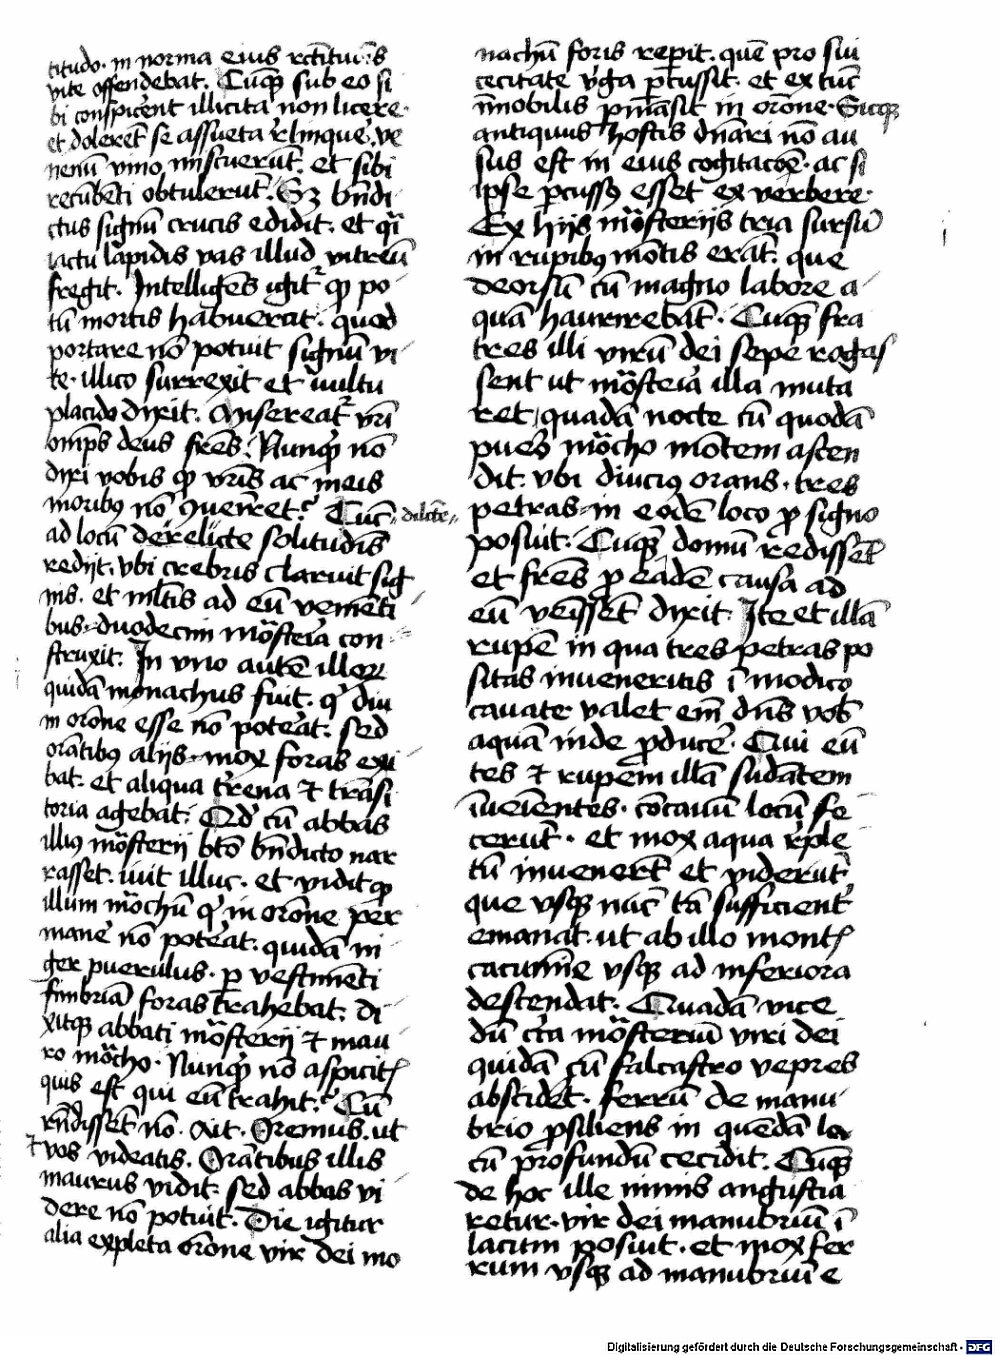 titudo. in norma eius rectitudinis
vite offendebat. Cūqꝫ sub eo si
bi conspicerēt illicita non licere.
et dolerēt se assueta relinquere. ve
nenū vino miscuerūt. et sibi
recūbēti obtulerūt. Sꝫ bn̄di
ctus signū crucis edidit. et q̄si
iactu lapidis vas illud vitreū
fregit. Intelligēs igit̄ qꝫ po
tū mortis habuerat. quod
portare nō potuit signū vi
te. illico surrexit et vultu
placido dixit. Misereat̄ vr̄i
omp̄s deus fr̄es. Nunqͥd nō
dixi vobis qꝫ vr̄is ac meis
moribus nō ꝯuēiret. Tūc dilc̄te
ad locū derelicte solitudīs
redijt. vbi crebris claruit sig
nis. et ml̄tis ad eū veniēti
bus. duodecim mōsteria con
struxit. In vno autē illoꝝ
quidā monachus fuit. qͥ diu
in orōne esse nō poterat. sed
orātibꝰ alijs. mox foras exi
bat. et aliqua t̄rena ⁊ trāsi
toria agebat. Qd̄ cū abbas
illiꝰ mōsterij bt̄o bn̄dicto nar
rasset. iuit illuc. et vidit qꝫ
illum mōchū qͥ in orōne per
manē nō poterat. quidā ni
ger puerulus. ꝑ vestimēti
fimbriā foras trahebat. di
xitqꝫ abbati mōsterij ⁊ mau
ro mōcho. Nunqͥd nō aspicitis
quis est qui eū trahit. Cū
rn̄dissēt nō. Ait. Oremus. ut
⁊ vos videatis. Orātibus illis
maurus vidit. sed abbas vi
dere nō potuit. Die igitur
alia expleta orōne vir dei mo
nachū foris reꝑit. quē pro sui
cecitate v̄ga ꝑcussit. et ex tūc
īmobilis ꝑmāsit in orōne. Sicqꝫ
antiquus hostis dn̄ari nō au
sus est in eius cogitacōe. ac si
ipse ꝑcussꝰ esset ex verbere.
Ex hijs mōsterijs tria sursū
in rupibꝰ mōtis erāt. que
deorsū cū magno labore a
quā hauriebāt. Cūqꝫ fra
tres illi virū dei sepe rogas
sent ut mōsteria illa muta
ret. quadā nocte cū quodā
puero mōcho mōtem ascen
dit. vbi diucius orans. tres
petras in eodē loco ꝓ signo
posuit. Cūqꝫ domū redisset
et fr̄es ꝓ eadē causa ad
eū venissēt dixit. Ite et illā
rupē in qua tres petras po
sitas inueneritis ī modico
cauate. valet em̄ dn̄s vob̄
aquā inde ꝓducere. Qui eū
tes ⁊ rupem illā sudātem
īueientes. cōcauū locū fe
cerūt. et mox aqua reple
tū inuenerūt et viderūt
que vsqꝫ nūc tā sufficient
emanat. ut ab illo montis
cacumine vsqꝫ ad inferiora
descendat. Quadā vice
dū cͥca mōsteriū viri dei
quidā cū falcastro vepres
abscidēt. ferrū de manu
brio ꝓsiliens in quēdā la
cū profundū cecidit. Cūqꝫ
de hoc ille nimis angustia
retur. vir dei manubriū ī
lacum posuit. et mox fer
rum vsqꝫ ad manubriū e
Digitalisierung gefördert durch die Deutsche Forschungsgemeinschaft - DFG